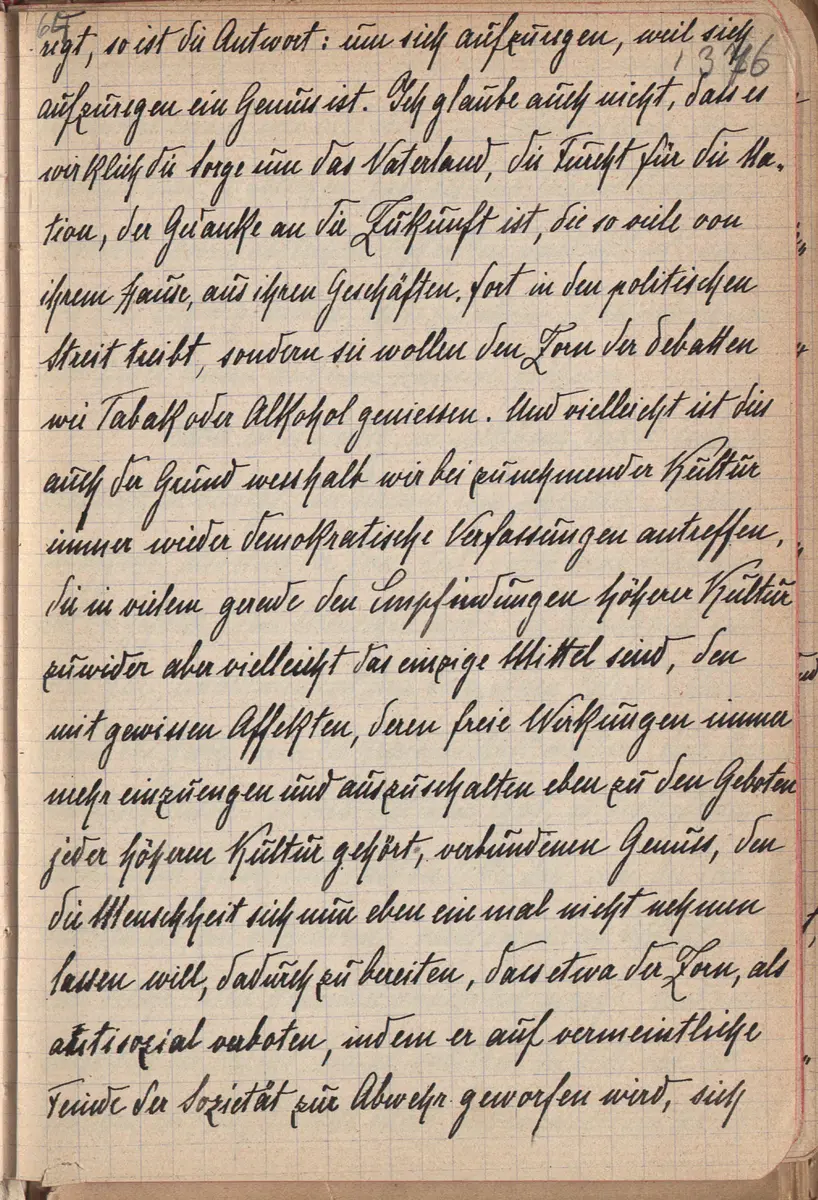 65
1376
regt, so ist die Antwort: um sich aufzuregen, weil sich
aufzuregen ein Genuss ist. Ich glaube auch nicht, dass es
wirklich die Sorge um das Vaterland, die Furcht für die Na-
tion, der Gedanke an die Zukunft ist, die so viele von
ihrem Hause, aus ihren Geschäften, fort in den politischen
Streit treibt, sondern sie wollen den Zorn der Debatten
wie Tabak oder Alkohol geniessen. Und vielleicht ist dies
auch der Grund wesshalb wir bei zunehmender Kultur
immer wieder demokratische Verfassungen antreffen,
die in vielem gerade den Empfindungen höherer Kultur
zuwider aber vielleicht das einzige Mittel sind, den
mit gewissen Affekten, deren freie Wirkungen immer
mehr einzuengen und auszuschalten eben zu den Geboten
jeder höheren Kultur gehört, verbundenen Genuss, den
die Menschheit sich nun eben ein mal nicht nehmen
lassen will, dadurch zu bereiten, dass etwa der Zorn, als
antisozial verboten, indem er auf vermeintliche
Feinde der Sozietät zur Abwehr geworfen wird, sich